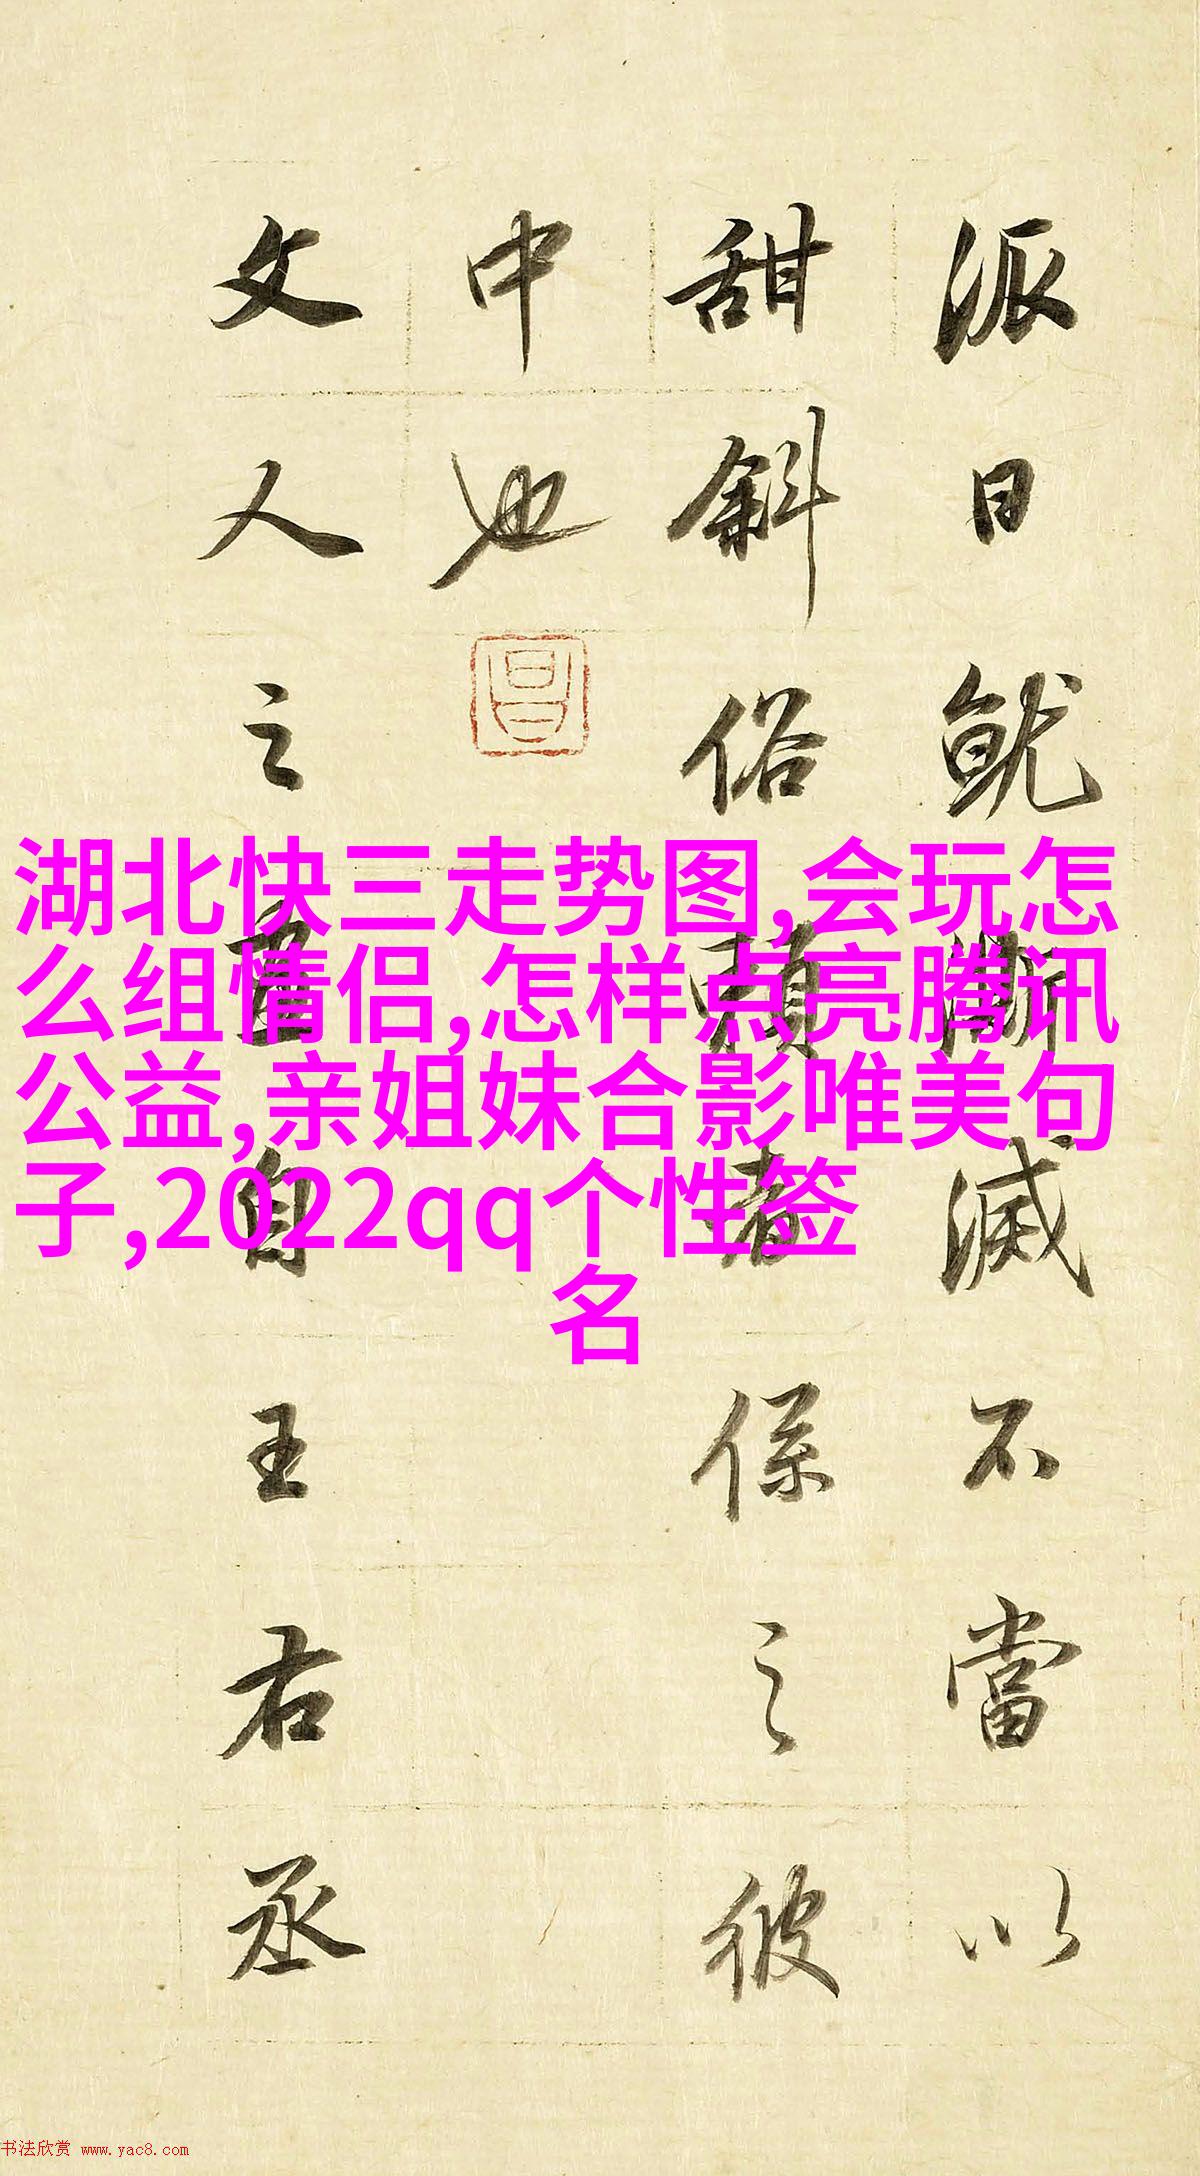 派日就澌滅不當以
甜斜俗賴者係之彼
中也
昌
文人之畫自王右丞
湖北快三走势图,会玩怎
么组情侣,怎样点亮腾讯
公益,亲姐妹合影唯美句
子,2022qq个性签
名
书法欣赏 www.yac8.com